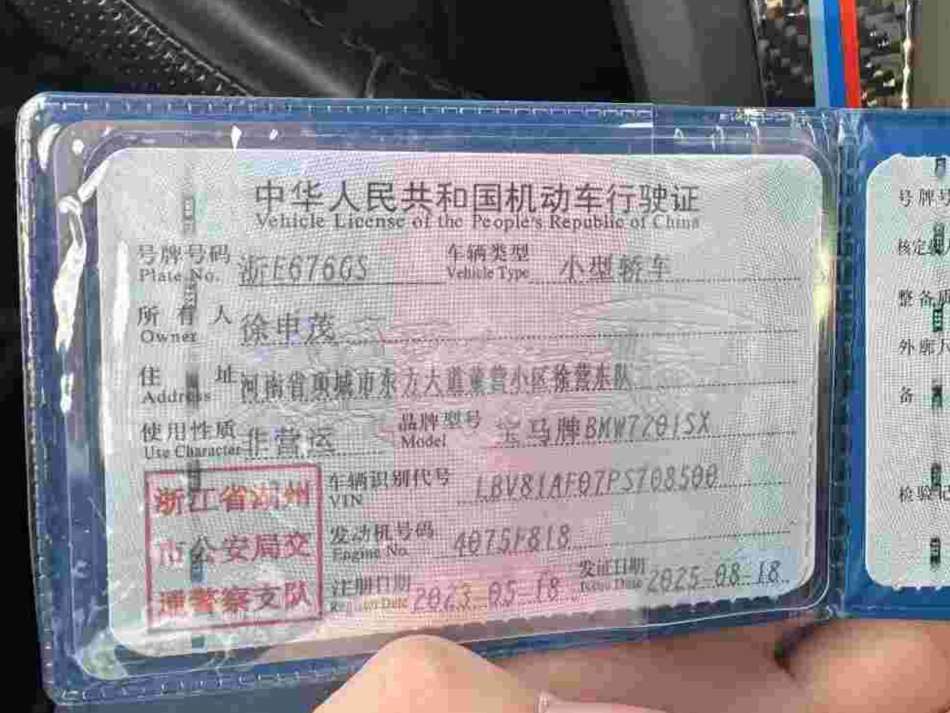 中华人民共和国机动车行驶证
Vehicle License of the People's Republic of China
号牌号码 浙E6760S 车辆类型 小型轿车
Plate No. Vehicle Type
所有人 徐申茂
Owner
住址 河南省项城市东方大道董营小区徐营东队
Address
使用性质 非营运 品牌型号 宝马牌BMW7201SX
Use Character Model
浙江省湖州 车辆识别代号 LBV81AF07PS708500
VIN
市公安局交 发动机号码 4075F818
Engine No.
通警察支队 注册日期 2023-05-18 发证日期 2025-08-18
Register Date Issue Date
号牌号
核定
整备质
外廓
备
检验